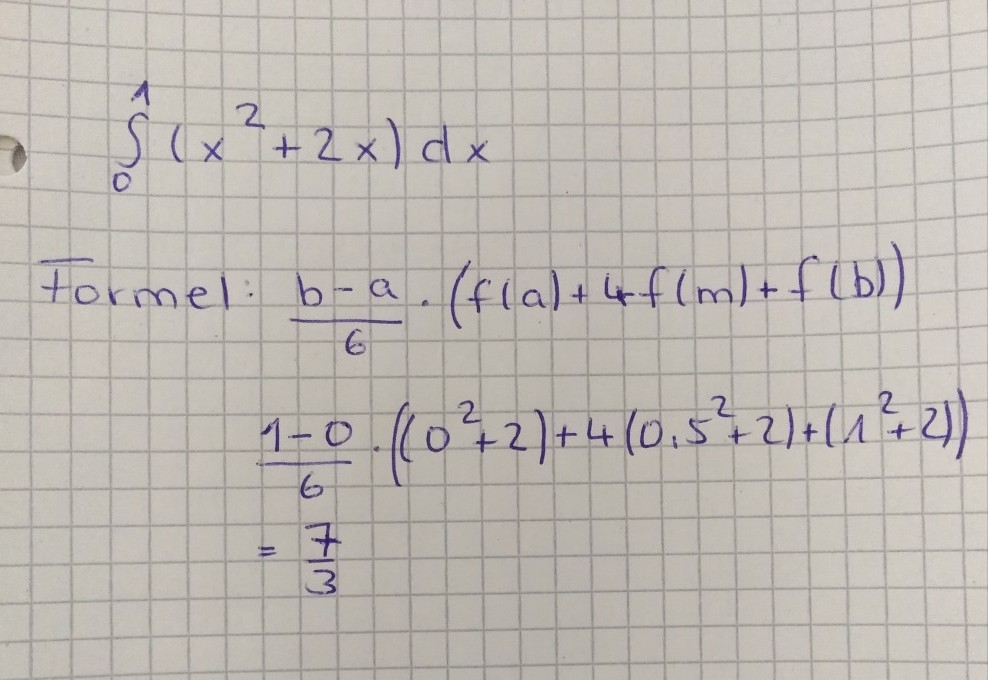 ∫₀¹ (x² + 2x) dx
Formel: (b-a)/6 · (f(a) + 4f(m) + f(b))
(1-0)/6 · ((0²+2) + 4(0,5²+2) + (1²+2))
= 7/3